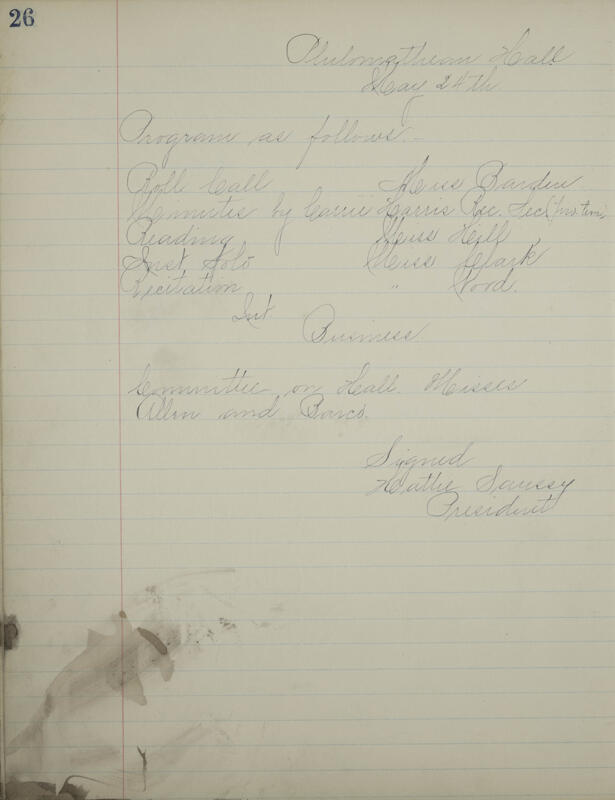 26
Philomathean Hall
May 24th
Program as follows:-
Roll Call Miss Barden
Minutes by Carrie Harris Rec. Sec (pro tem)
Reading Miss Hill
Inst Solo Miss Clark
Recitation " Ford.
Int
Business
Committee on Hall. Misses
Allen and Barco.
Signed
Hattie Saussy
President